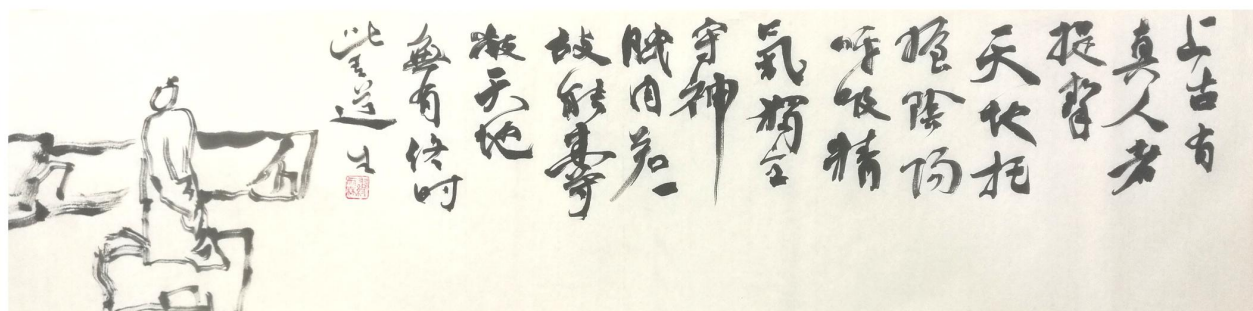 上古有
真人者
提挈
天地把
握陰陽
呼吸精
氣獨立
守神
肌肉若一
故能壽
敝天地
無有终时
此其道生